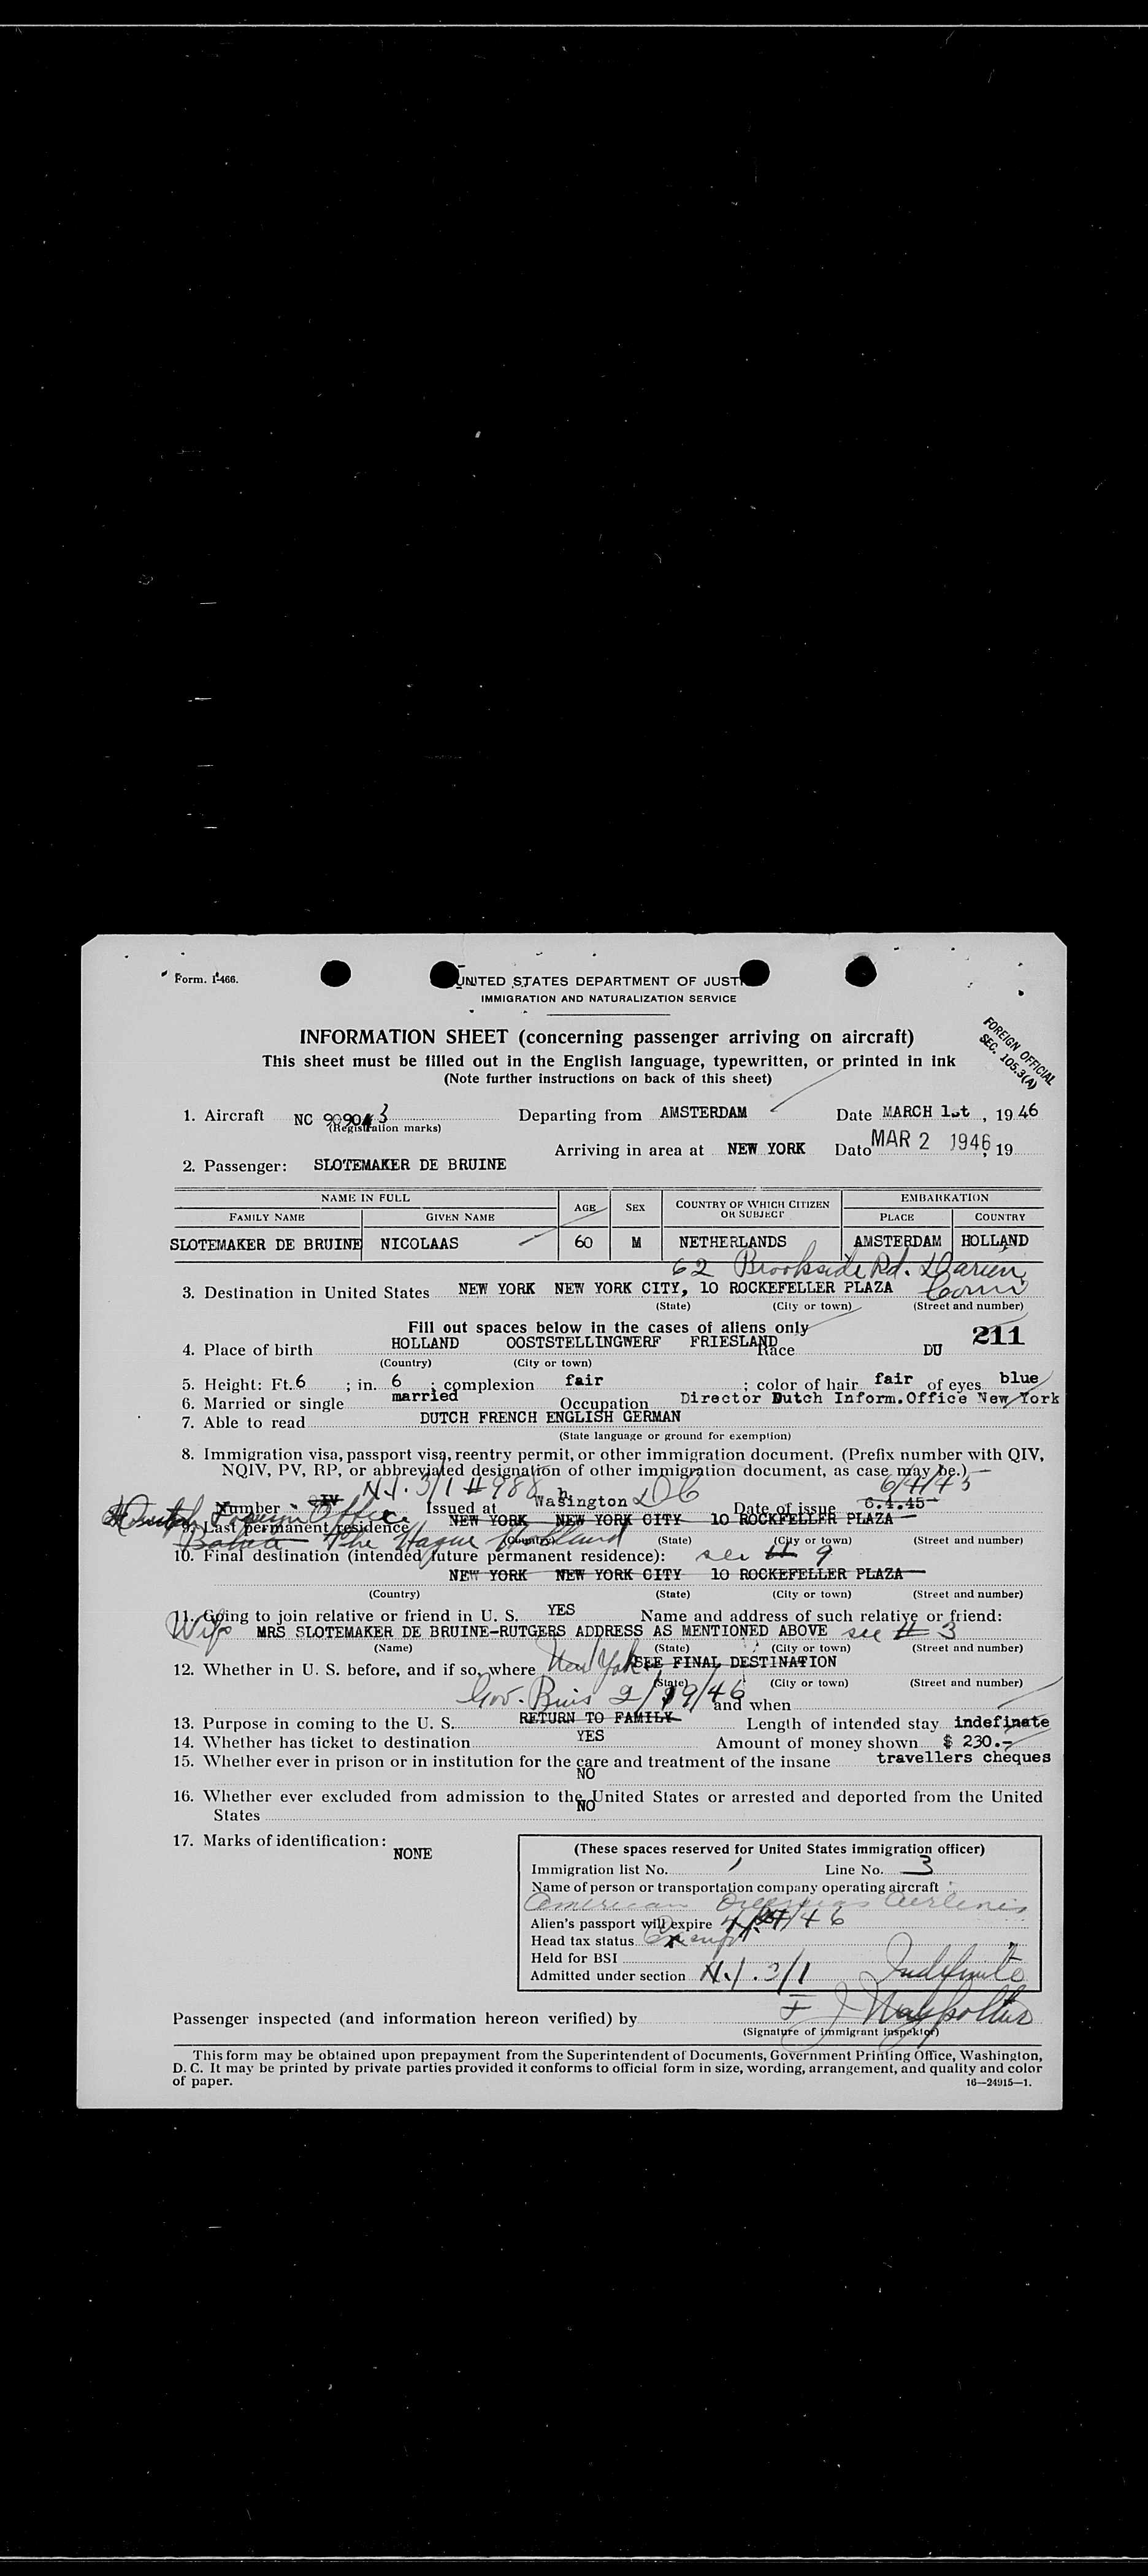 Form. I-466.
UNITED STATES DEPARTMENT OF JUST
IMMIGRATION AND NATURALIZATION SERVICE
FOREIGN OFFICIAL
SEC. 105.3(A)
INFORMATION SHEET (concerning passenger arriving on aircraft)
This sheet must be filled out in the English language, typewritten, or printed in ink
(Note further instructions on back of this sheet)
1. Aircraft NC 90903 Departing from AMSTERDAM Date MARCH 1st, 1946
(Registration marks)
Arriving in area at NEW YORK Date MAR 2 1946, 19
2. Passenger: SLOTEMAKER DE BRUINE
NAME IN FULL AGE SEX COUNTRY OF WHICH CITIZEN OR SUBJECT EMBARKATION
FAMILY NAME GIVEN NAME PLACE COUNTRY
SLOTEMAKER DE BRUINE NICOLAAS 60 M NETHERLANDS AMSTERDAM HOLLAND
62 Brookside Rd. Darien,
3. Destination in United States NEW YORK NEW YORK CITY, 10 ROCKEFELLER PLAZA Conn
(State) (City or town) (Street and number)
Fill out spaces below in the cases of aliens only
211
4. Place of birth HOLLAND OOSTSTELLINGWERF FRIESLAND Race DU
(Country) (City or town)
5. Height: Ft. 6 ; in. 6 ; complexion fair ; color of hair fair of eyes blue
6. Married or single married Occupation Director Dutch Inform.Office New York
7. Able to read DUTCH FRENCH ENGLISH GERMAN
(State language or ground for exemption)
8. Immigration visa, passport visa, reentry permit, or other immigration document. (Prefix number with QIV,
NQIV, PV, RP, or abbreviated designation of other immigration document, as case may be.)
N.I. 3/1 # 988 6/4/45
Number Issued at Wasington DC Date of issue 6.4.45
Foreign Office
9. Last permanent residence NEW YORK NEW YORK CITY 10 ROCKEFELLER PLAZA
The Hague Holland
(Country) (State) (City or town) (Street and number)
10. Final destination (intended future permanent residence): see # 9
NEW YORK NEW YORK CITY 10 ROCKEFELLER PLAZA
(Country) (State) (City or town) (Street and number)
11. Going to join relative or friend in U. S. YES Name and address of such relative or friend:
Wife MRS SLOTEMAKER DE BRUINE-RUTGERS ADDRESS AS MENTIONED ABOVE see # 3
(Name) (State) (City or town) (Street and number)
12. Whether in U. S. before, and if so, where New York SEE FINAL DESTINATION
(State) (City or town) (Street and number)
Gov. Buis 2/19/46 and when
13. Purpose in coming to the U. S. RETURN TO FAMILY Length of intended stay indefinate
14. Whether has ticket to destination YES Amount of money shown $ 230.-
15. Whether ever in prison or in institution for the care and treatment of the insane travellers cheques
NO
16. Whether ever excluded from admission to the United States or arrested and deported from the United
States NO
17. Marks of identification: NONE
(These spaces reserved for United States immigration officer)
Immigration list No. 1 Line No. 3
Name of person or transportation company operating aircraft
American Overseas Airlines
Alien's passport will expire
Head tax status Exempt
Held for BSI
Admitted under section N.I. 3/1 Indefinite
Passenger inspected (and information hereon verified) by
(Signature of immigrant inspektor)
This form may be obtained upon prepayment from the Superintendent of Documents, Government Printing Office, Washington,
D. C. It may be printed by private parties provided it conforms to official form in size, wording, arrangement, and quality and color
of paper.
16—24915—1.